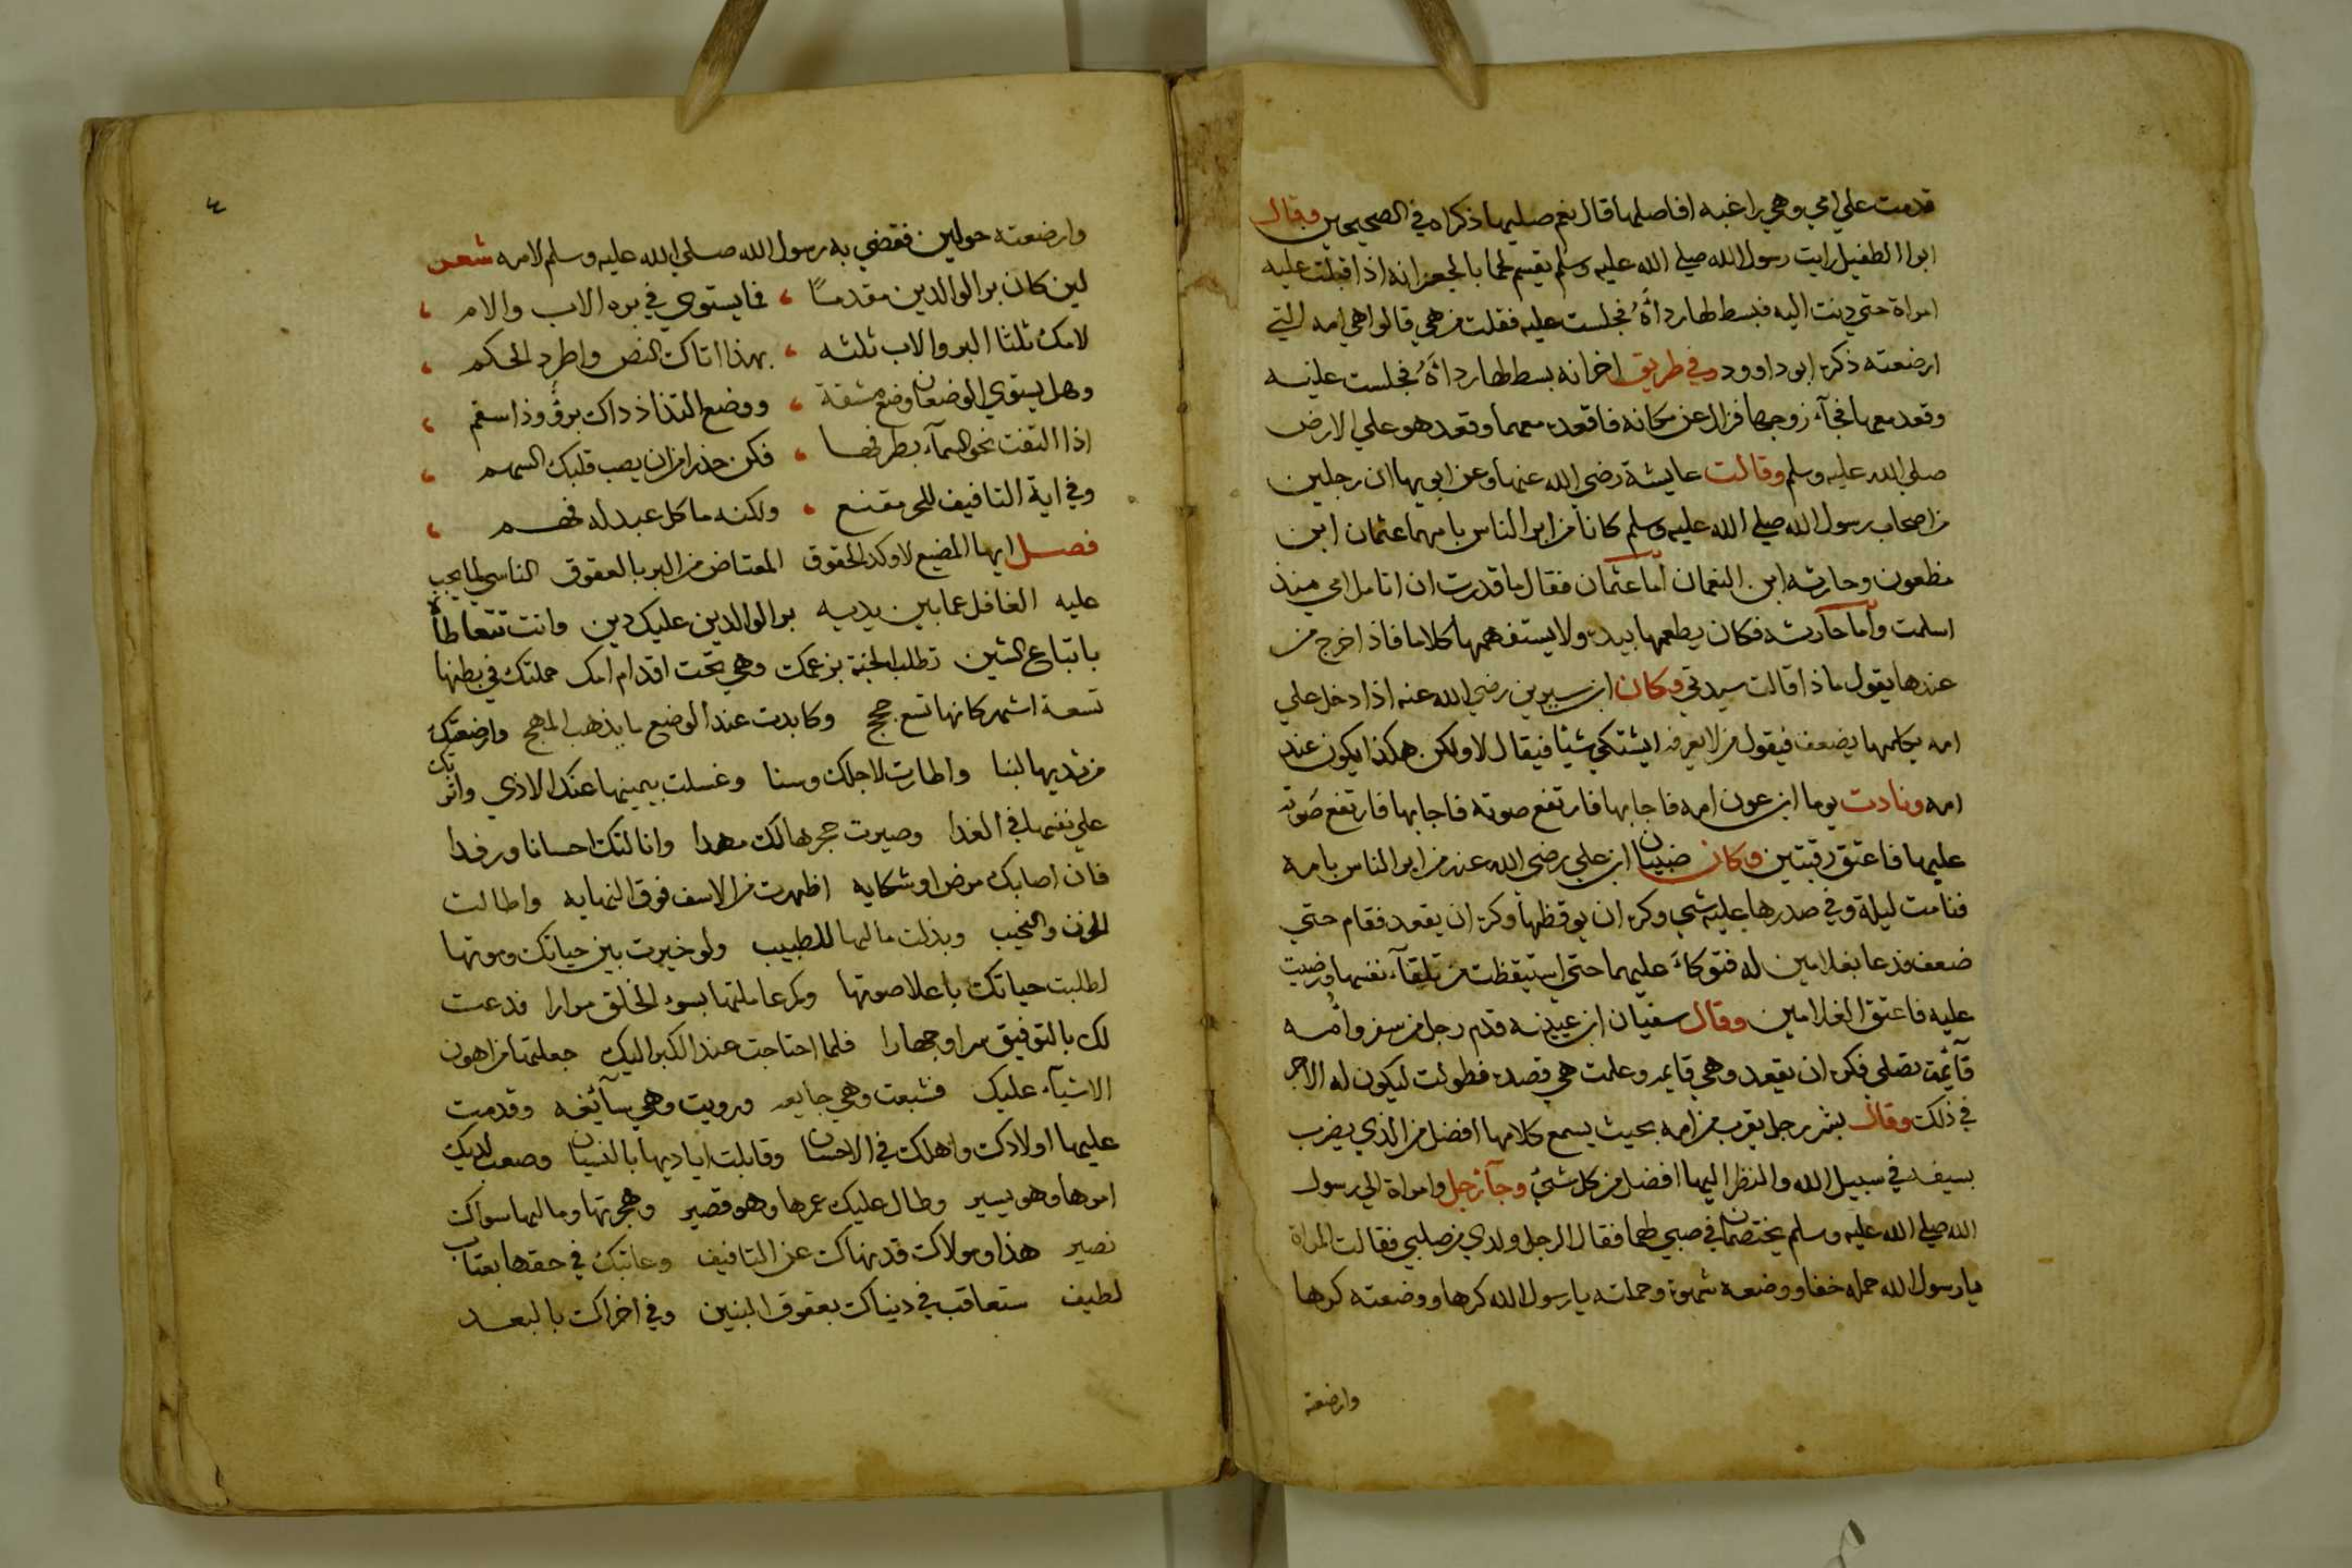 قدمت علي امي وهي راغبه افاصلها قال نعم صليها ذكراه في الصحيحين وقال
ابوا الطفيل رايت رسول الله صلي الله عليه وسلم يقسم لحما بالجعرانه اذ اقبلت عليه
امراة حتي دنت اليه فبسط لها رداَهُ فجلست عليه فقلت من هي قالوا هي امه التي
ارضعته ذكره ابو داوود وفي طريق اخر انه بسط لها رداَهُ فجلست عليه
وقعد معها فجآء زوجها فزال عن مكانه فاقعده معهما وقعد هو علي الارض
صلي الله عليه وسلم وقالت عايشة رضي الله عنها وعن ابويها ان رجلين
من اصحاب رسول الله صلي الله عليه وسلم كانا من ابر الناس بامهما عثمان ابن
مظعون وحارثه ابن النعمان أما عثمان فقال ما قدرت ان اتامل امي منذ
اسلمت وأما حارثه فكان يطعمها بيده ولا يستفهمها كلاما فاذا خرج من
عندها يقول ماذا قالت سيدتي وكان ابن سيرين رضي الله عنه اذا دخل علي
امه يكلمها يضعف فيقول من لا يعرفه ايشتكي شيئا فيقال لا ولكن هكذا يكون عند
امه ونادت يوما ابن عون امه فاجابها فارتفع صوته فاجابها فارتفع صوته
عليها فاعتق رقبتين وكان ضبيان ابن علي رضي الله عنه من ابر الناس بامه
فنامت ليلة وفي صدرها عليه شي وكره ان يوقظها وكره ان يقعد فقام حتي
ضعف فدعا بغلامين له فتوكاَ عليهما حتي استيقظت من تلقآء نفسها ورضيت
عليه فاعتق الغلامين وقال سفيان ابن عيينه قدم رجل من سفر وأُمه
قآئمة تصلي فكره ان يقعد وهي قايمه وعلمت هي قصده فطولت ليكون له الاجر
في ذلك وقال بشر رجل يقرب من امه بحيث يسمع كلامها افضل من الذي يضرب
بسيفه في سبيل الله والنظر اليها افضل من كل شي وجآ رجل وامراة الي رسول
الله صلي الله عليه وسلم يختصمان في صبي لهما فقال الرجل ولدي من صلبي فقالت المراة
يا رسول الله حمله خفا ووضعه شهوة وحملته يا رسول الله كرها ووضعته كرها
وارضعته
٤
وارضعته حولين فقضي به رسول الله صلي الله عليه وسلم لامه شعر
لين كان بر الوالدين مقدمًا ، فما يستوي في بره الاب والام ،
لامك ثلثا البر والاب ثلثه ، بهذا اتاك النص واطرد الحكم ،
وهل يستوي الوضعان وضع مشقة ، ووضع التذاذ ذاك برؤ وذا سقم ،
اذا التفت نحو السمآء بطرفها ، فكن حذرا من ان يصب قلبك السهم ،
وفي اية التافيف للحر مقنع ، ولكنه ما كل عبد له فهم ،
فصل ايها المضيع لاوكد الحقوق المعتاض من البر بالعقوق الناسي لما يجب
عليه الغافل عما بين يديه بر الوالدين عليك دين وانت تتعاطاه
باتباع الشين تطلب الجنة بزعمك وهي تحت اقدام امك حملتك في بطنها
تسعة اشهر كانها تسع حجج وكابدت عند الوضع ما يذهب المهج وارضعتك
من ثديها لبنا واطارت لاجلك وسنا وغسلت بيمينها عنك الاذي واثرتك
علي نفسها في الغدا وصيرت حجرها لك مهدا وانالتك احسانا ورفدا
فان اصابك مرض او شكايه اظهرت من الاسف فوق النهايه واطالت
الحزن والنحيب وبذلت مالها للطبيب ولو خيرت بين حياتك وموتها
لطلبت حياتك باعلا صوتها وكم عاملتها بسوء الخلق مرارا فدعت
لك بالتوفيق سرا وجهارا فلما احتاجت عند الكبر اليك جعلتها من اهون
الاشيآء عليك فشبعت وهي جايعه ورويت وهي سآئغه وقدمت
عليها اولادك واهلك في الاحسان وقابلت اياديها بالنسيان وصعب لديك
امرها وهو يسير وطال عليك عمرها وهو قصير وهجرتها وما لها سواك
نصير هذا ومولاك قد نهاك عن التافيف وعاتبك في حقها بعتاب
لطيف ستعاقب في دنياك بعقوق البنين وفي اخراك بالبعد